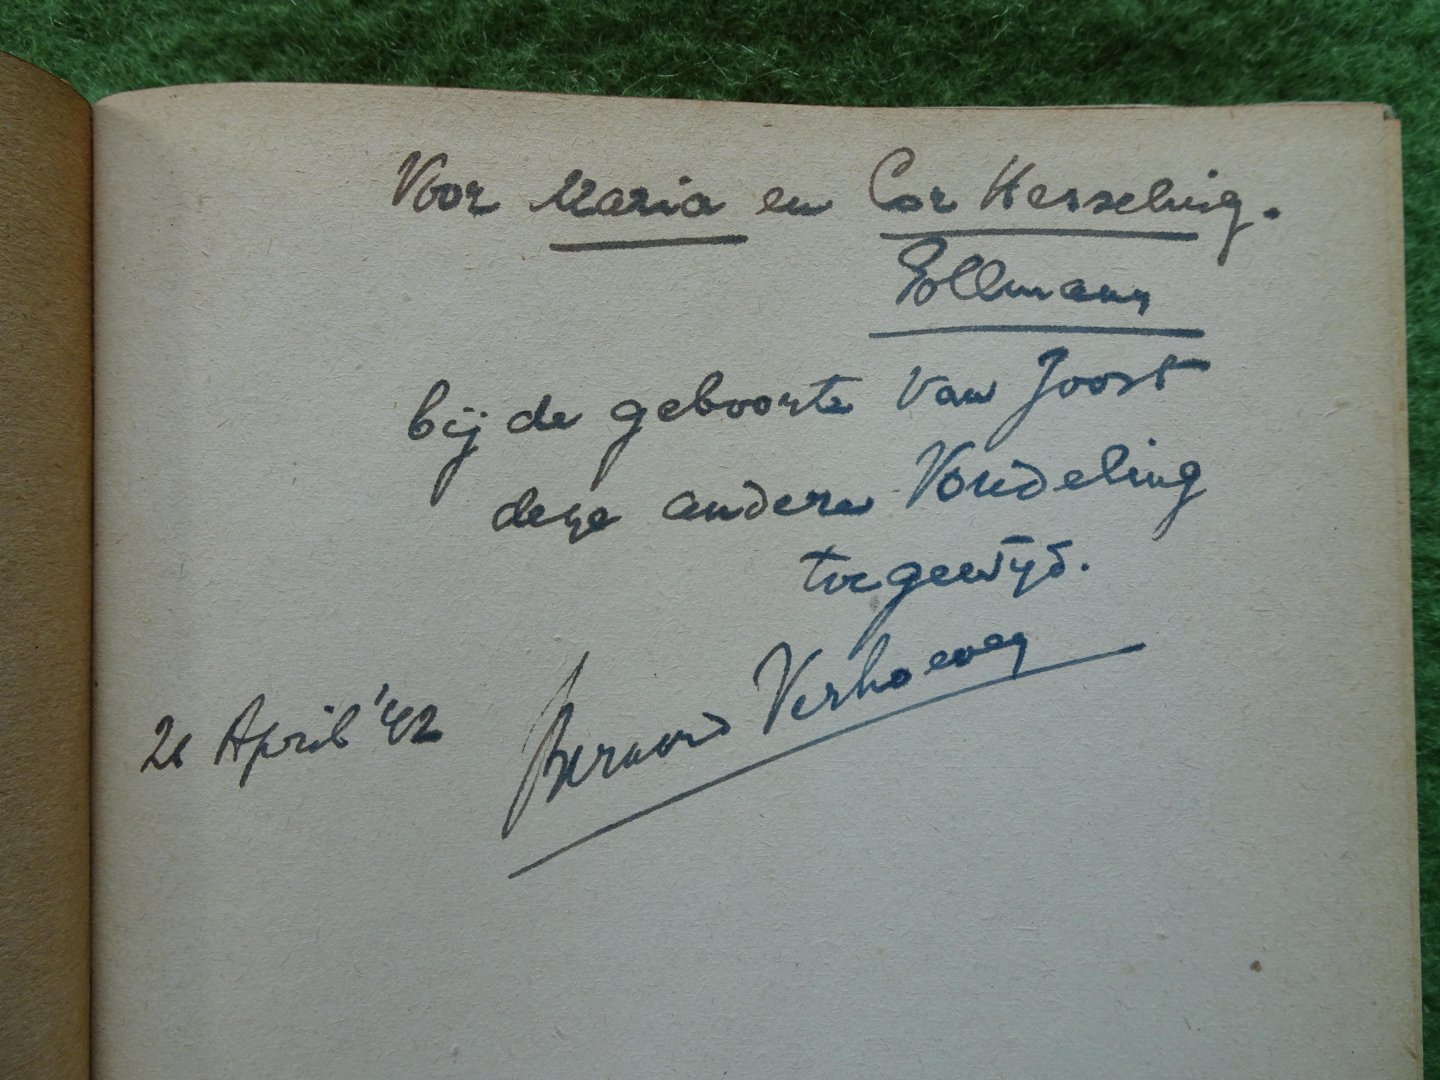 Voor Maria en Cor Hesseling.
Tollmann
bij de geboorte van Joost
deze andere Vondeling
toegewijd.
Bernard Verhoeven
21 April '42